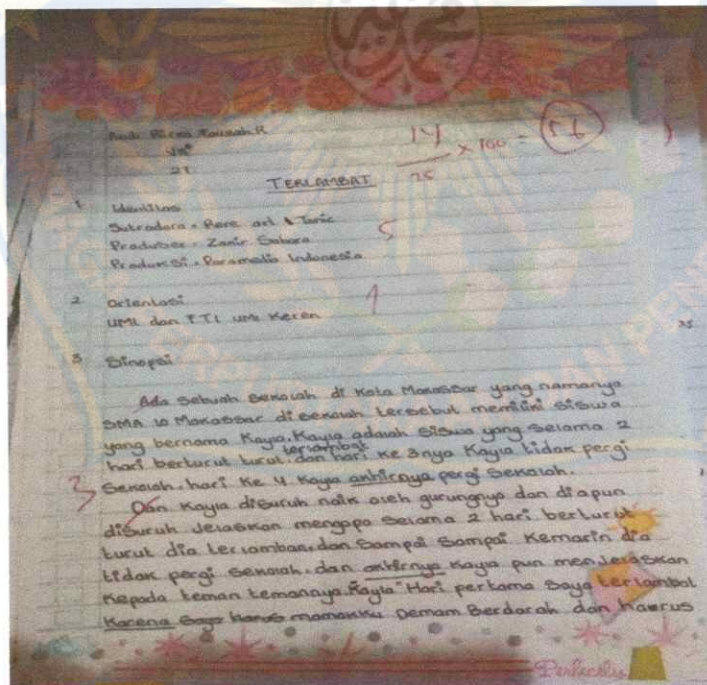 VII
21
14/25 × 100 = 56
TERLAMBAT
1 Identitas
Sutradara = Rere art & Tanic
Produser = Zanir Sabara
5
Produksi = Paramedia Indonesia
2 Orientasi
UMI dan FTI UMI Keren
1
3 Sinopsi
Ada sebuah sekolah di Kota Makassar yang namanya
SMA 10 Makassar di sekolah tersebut memiliki siswa
yang bernama Kayla. Kayla adalah siswa yang selama 2
terlambat
hari berturut turut. dan hari ke 3nya Kayla tidak pergi
Sekolah. hari ke 4 Kayla akhirnya pergi sekolah.
3
Dan Kayla disuruh naik oleh gurungnya dan diapun
disuruh Jelaskan mengapa selama 2 hari berturut
turut dia terlambat. dan sampai sampai kemarin dia
tidak pergi sekolah. dan akhirnya Kayla pun menJelaskan
Kepada teman temannya. Kayla "Hari pertama saya terlambat
Karena saya harus mamakku Demam Berdarah dan haurus
Perfectly